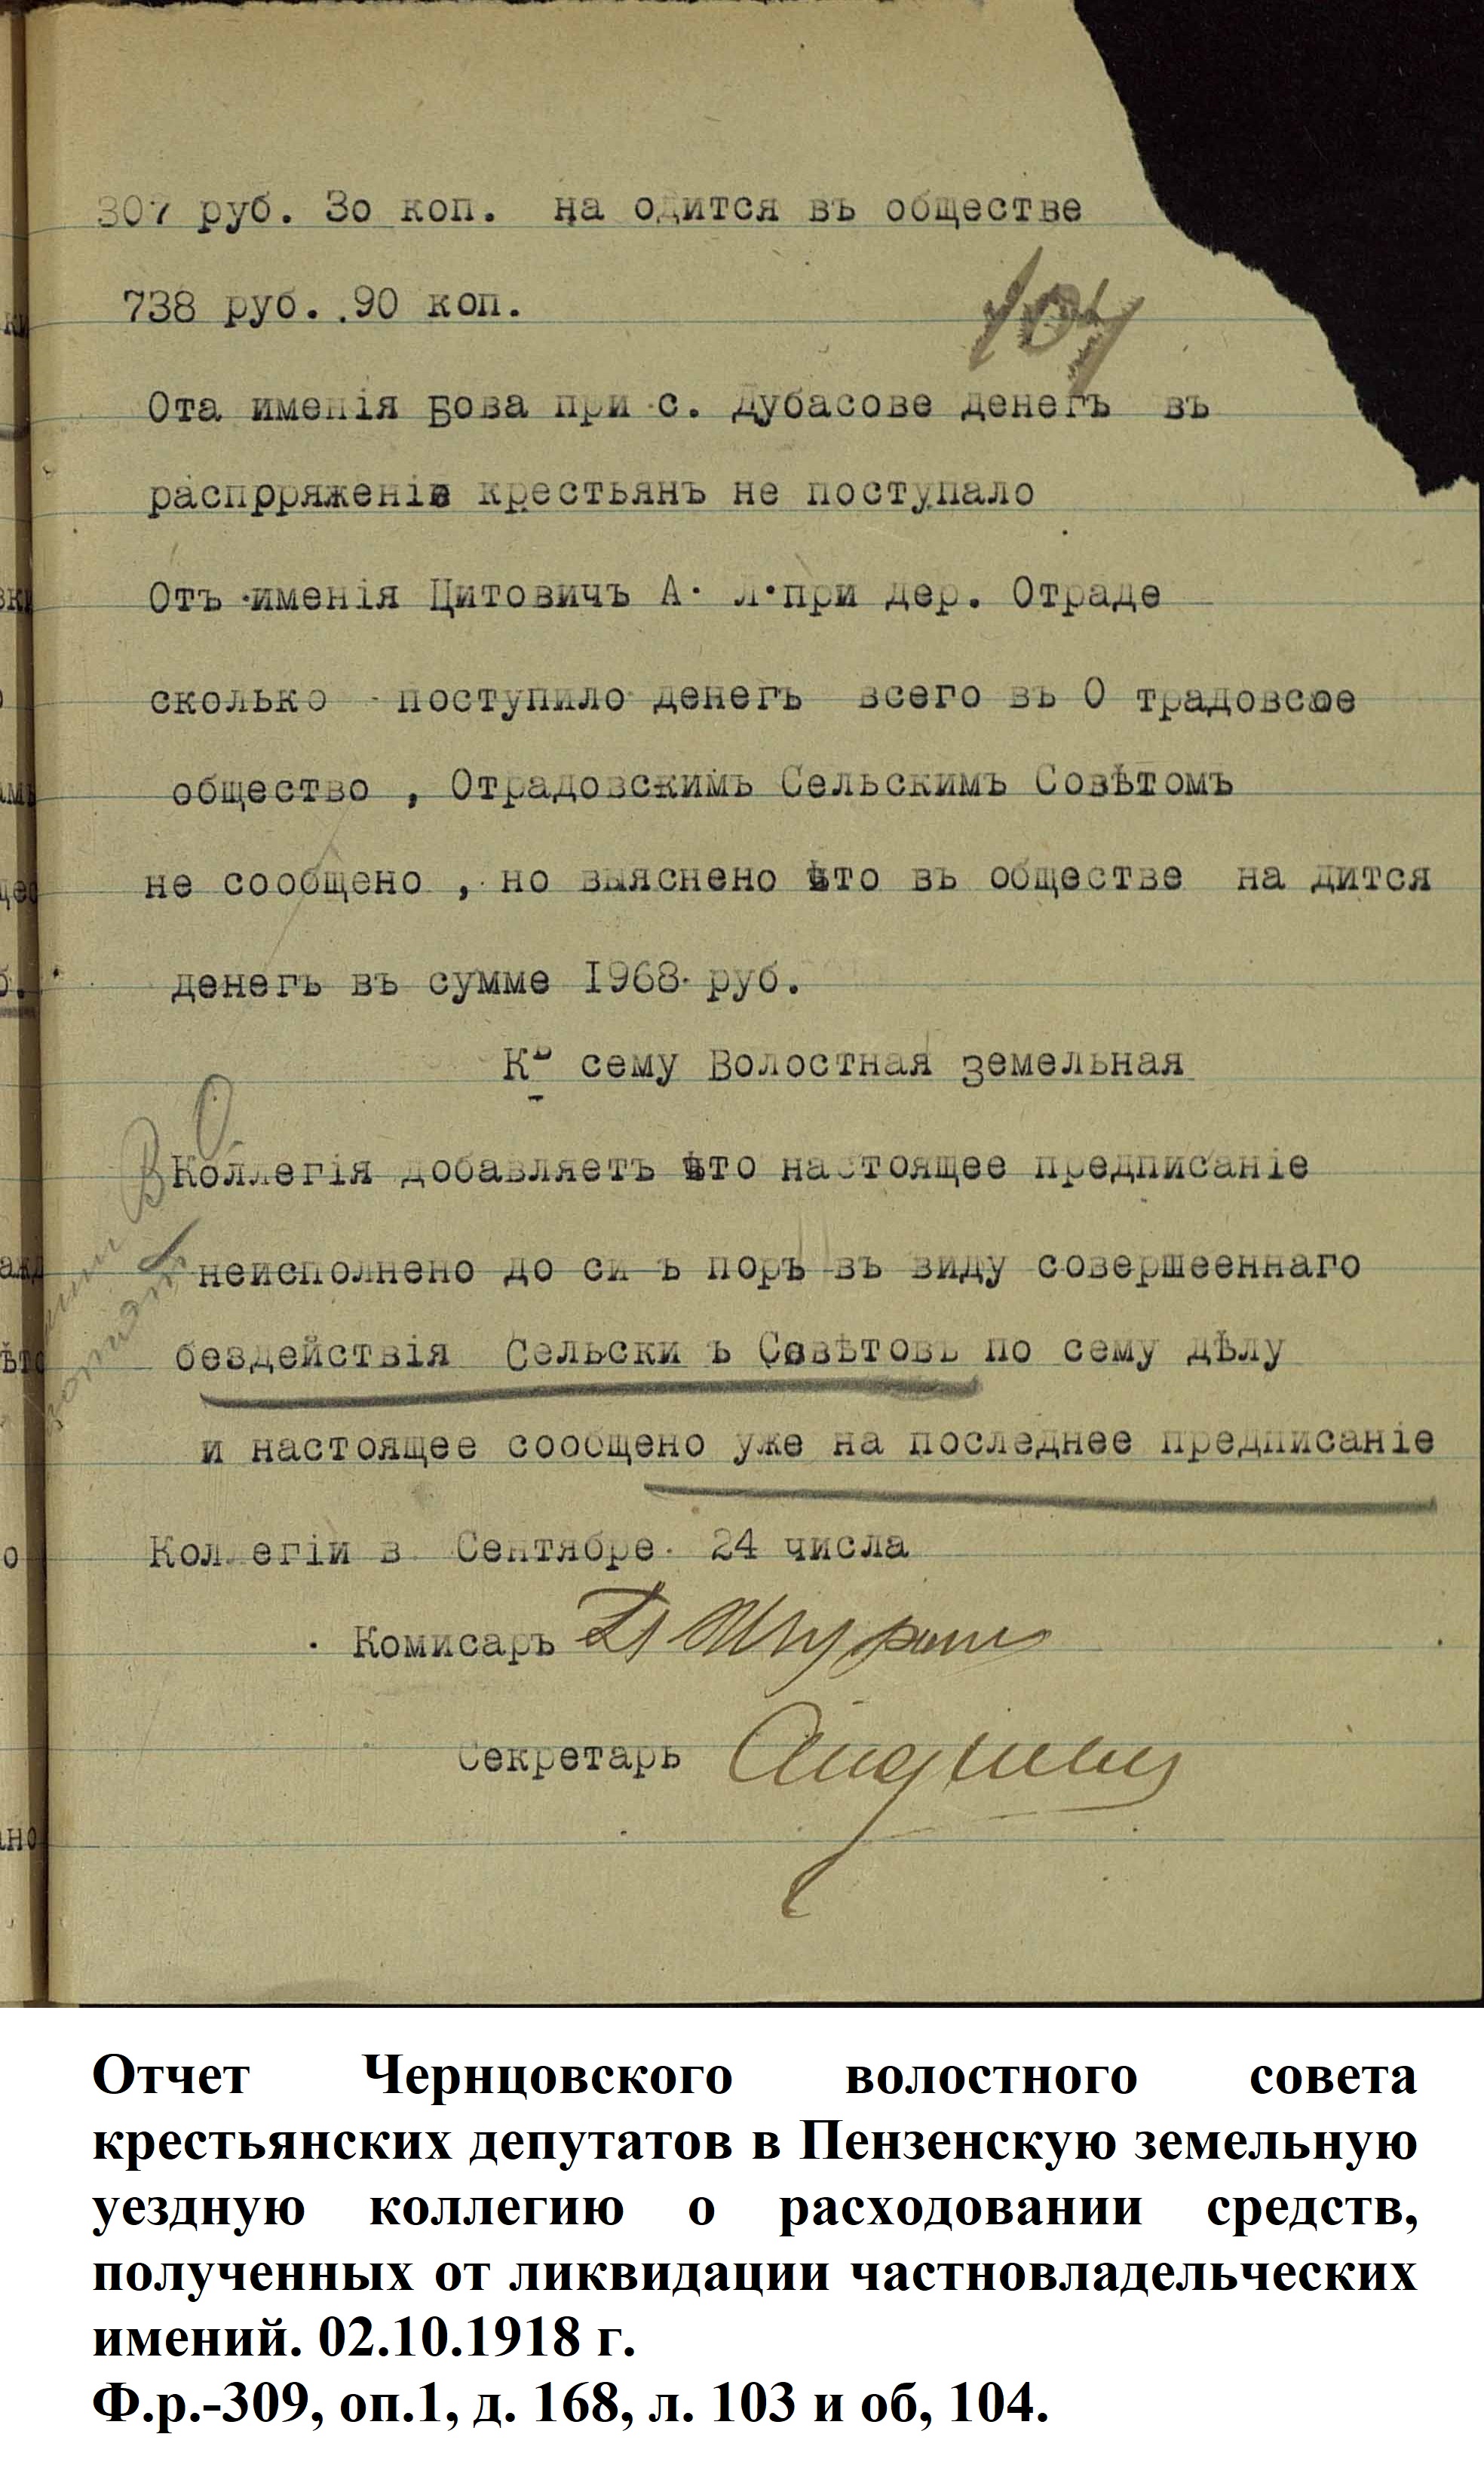 307 руб. 3о коп. на одится въ обществе
104
738 руб. .90 коп.
Ота именія Бова при с. Дубасове денегъ въ
распрряженіе крестьянъ не поступало
Отъ именія Цитовичъ А. Л.при дер. Отраде
сколько поступило денегъ всего въ О традовское
общество , Отрадовскимъ Сельскимъ Совѣтомъ
не сообщено , но выяснено что въ обществе на дится
денегъ въ сумме I968 руб.
Къ сему Волостная земельная
Коллегія добавляетъ что настоящее предписаніе
неисполнено до си ъ поръ въ виду совершееннаго
бездействія Сельски ъ Совѣтовъ по сему дѣлу
и настоящее сообщено уже на последнее предписаніе
Коллегіи в Сентябре 24 числа
Комисаръ
Секретарь
Отчет Чернцовского волостного совета
крестьянских депутатов в Пензенскую земельную
уездную коллегию о расходовании средств,
полученных от ликвидации частновладельческих
имений. 02.10.1918 г.
Ф.р.-309, оп.1, д. 168, л. 103 и об, 104.